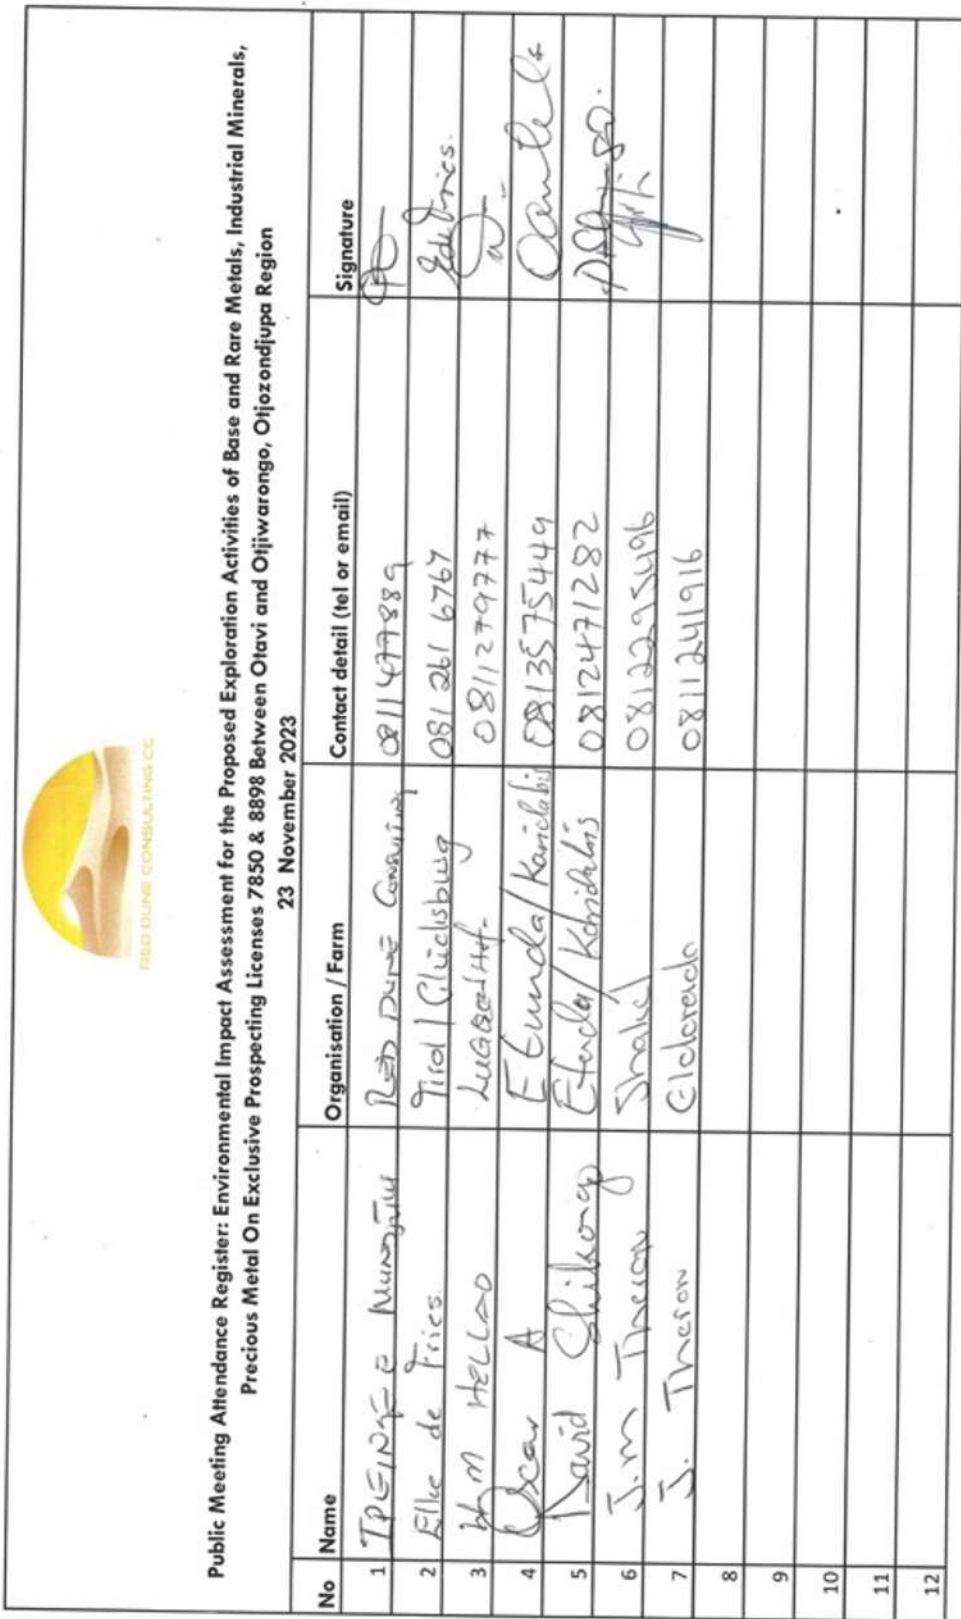 RED DUNE CONSULTING CC
Public Meeting Attendance Register: Environmental Impact Assessment for the Proposed Exploration Activities of Base and Rare Metals, Industrial Minerals,
Precious Metal On Exclusive Prospecting Licenses 7850 & 8898 Between Otavi and Otjiwarongo, Otjozondjupa Region
23 November 2023
No Name Organisation / Farm Contact detail (tel or email) Signature
1 RED DUNE CONSULTING 0811477889
2 Elke de Fries. Tirol / Glücksburg 081 261 6767 Ede Fries.
3 HELLAO 0811279777
4 Oscar A Etunda / Karidabis 0813575449
5 David Shikongo Etunda / Karidabis 0812471282
6 J.M Theron Shalid 0812295496
7 J. Theron Eldorado 0811241916
8
9
10
11
12